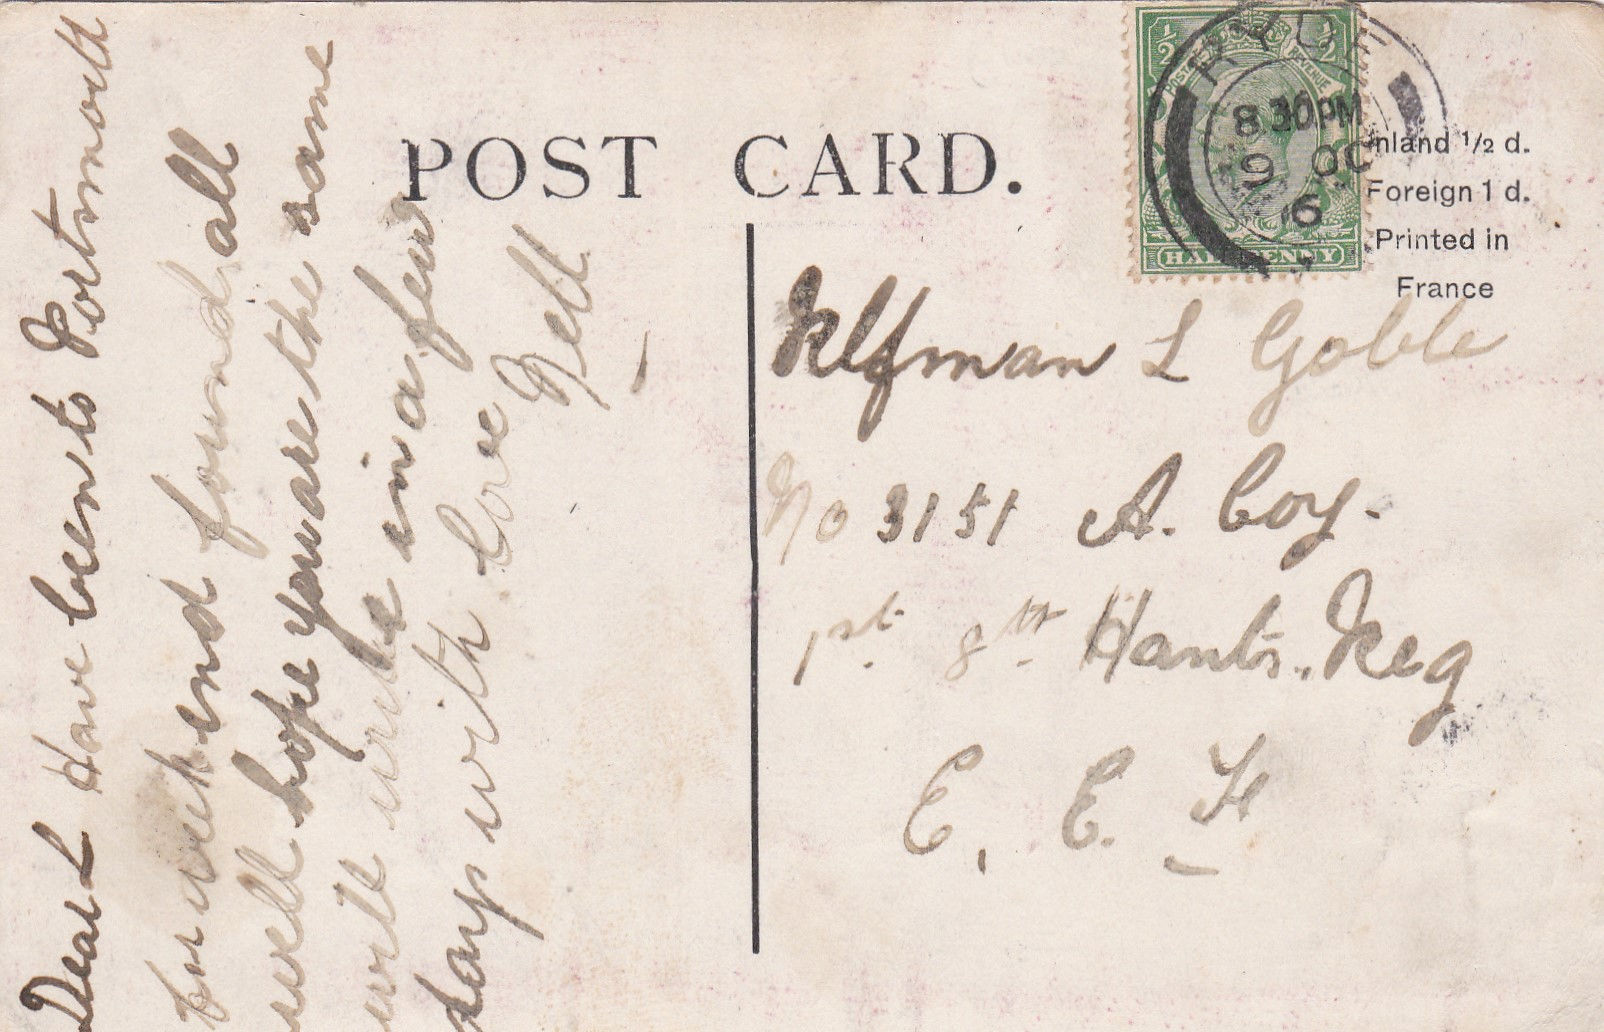 POST CARD.
Inland 1/2 d.
Foreign 1 d.
Printed in
France
½ ½
POSTAGE REVENUE
HALF PENNY
RYDE
8 30 PM
9 OC
16
Dear L Have been to Portsmouth
for week end found all
well hope you are the same
will write in a few
days with love
Nell
Rlfman L Goble
No 3151 A. Coy.
1st 8th Hants. Reg
E. E. F